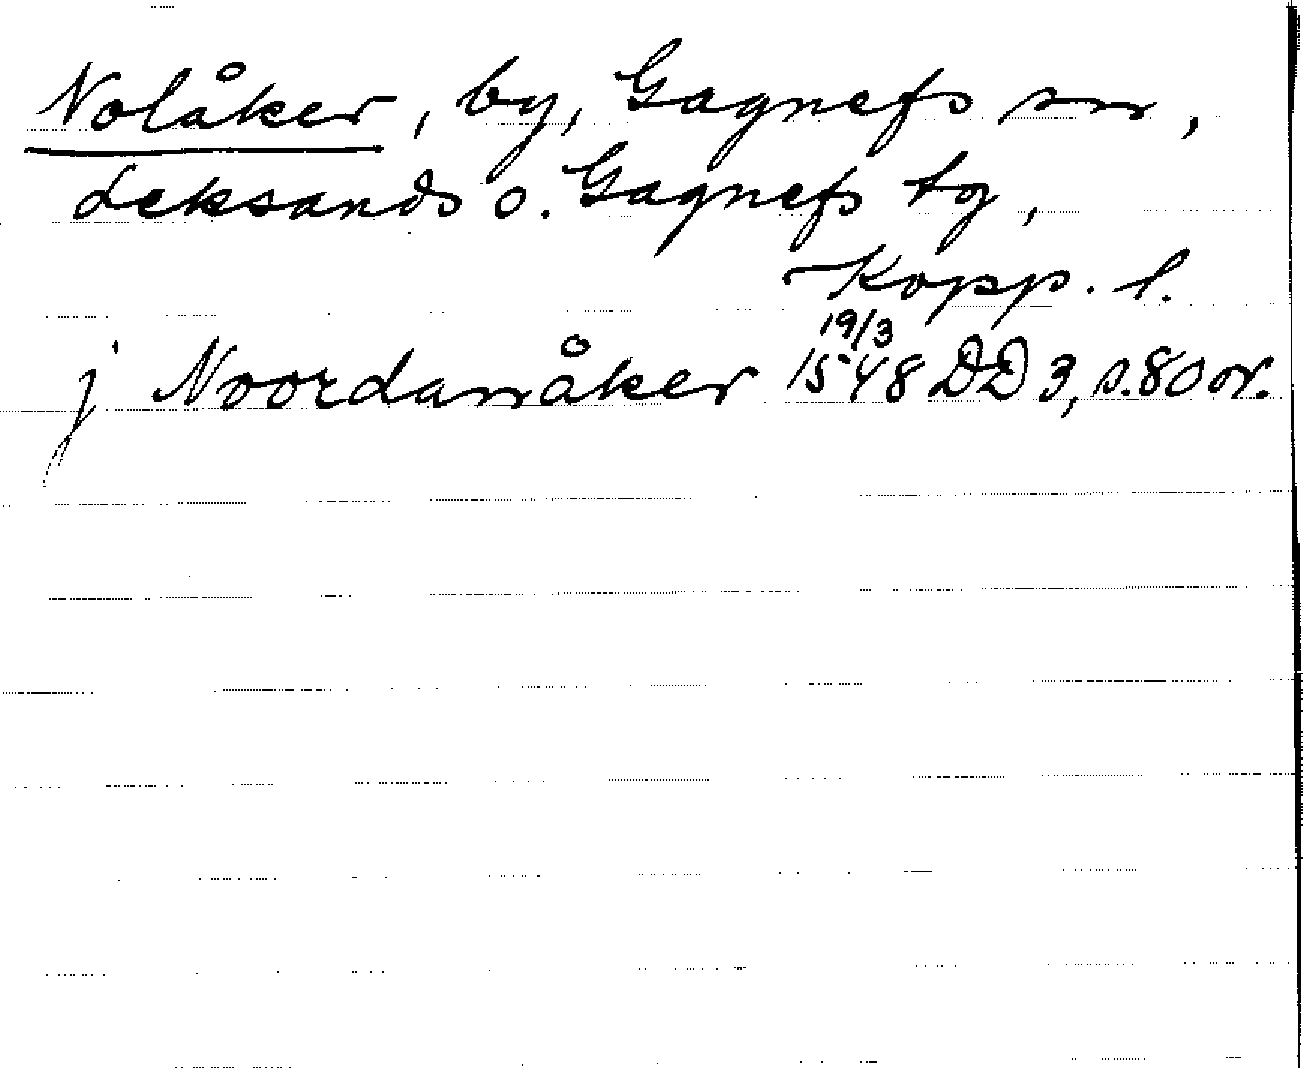 Nolåker, by, Gagnefs sn,
Leksands o. Gagnefs tg,
Kopp. l.
j Noordanåker 19/3 1548 DD 3, s. 80 or.